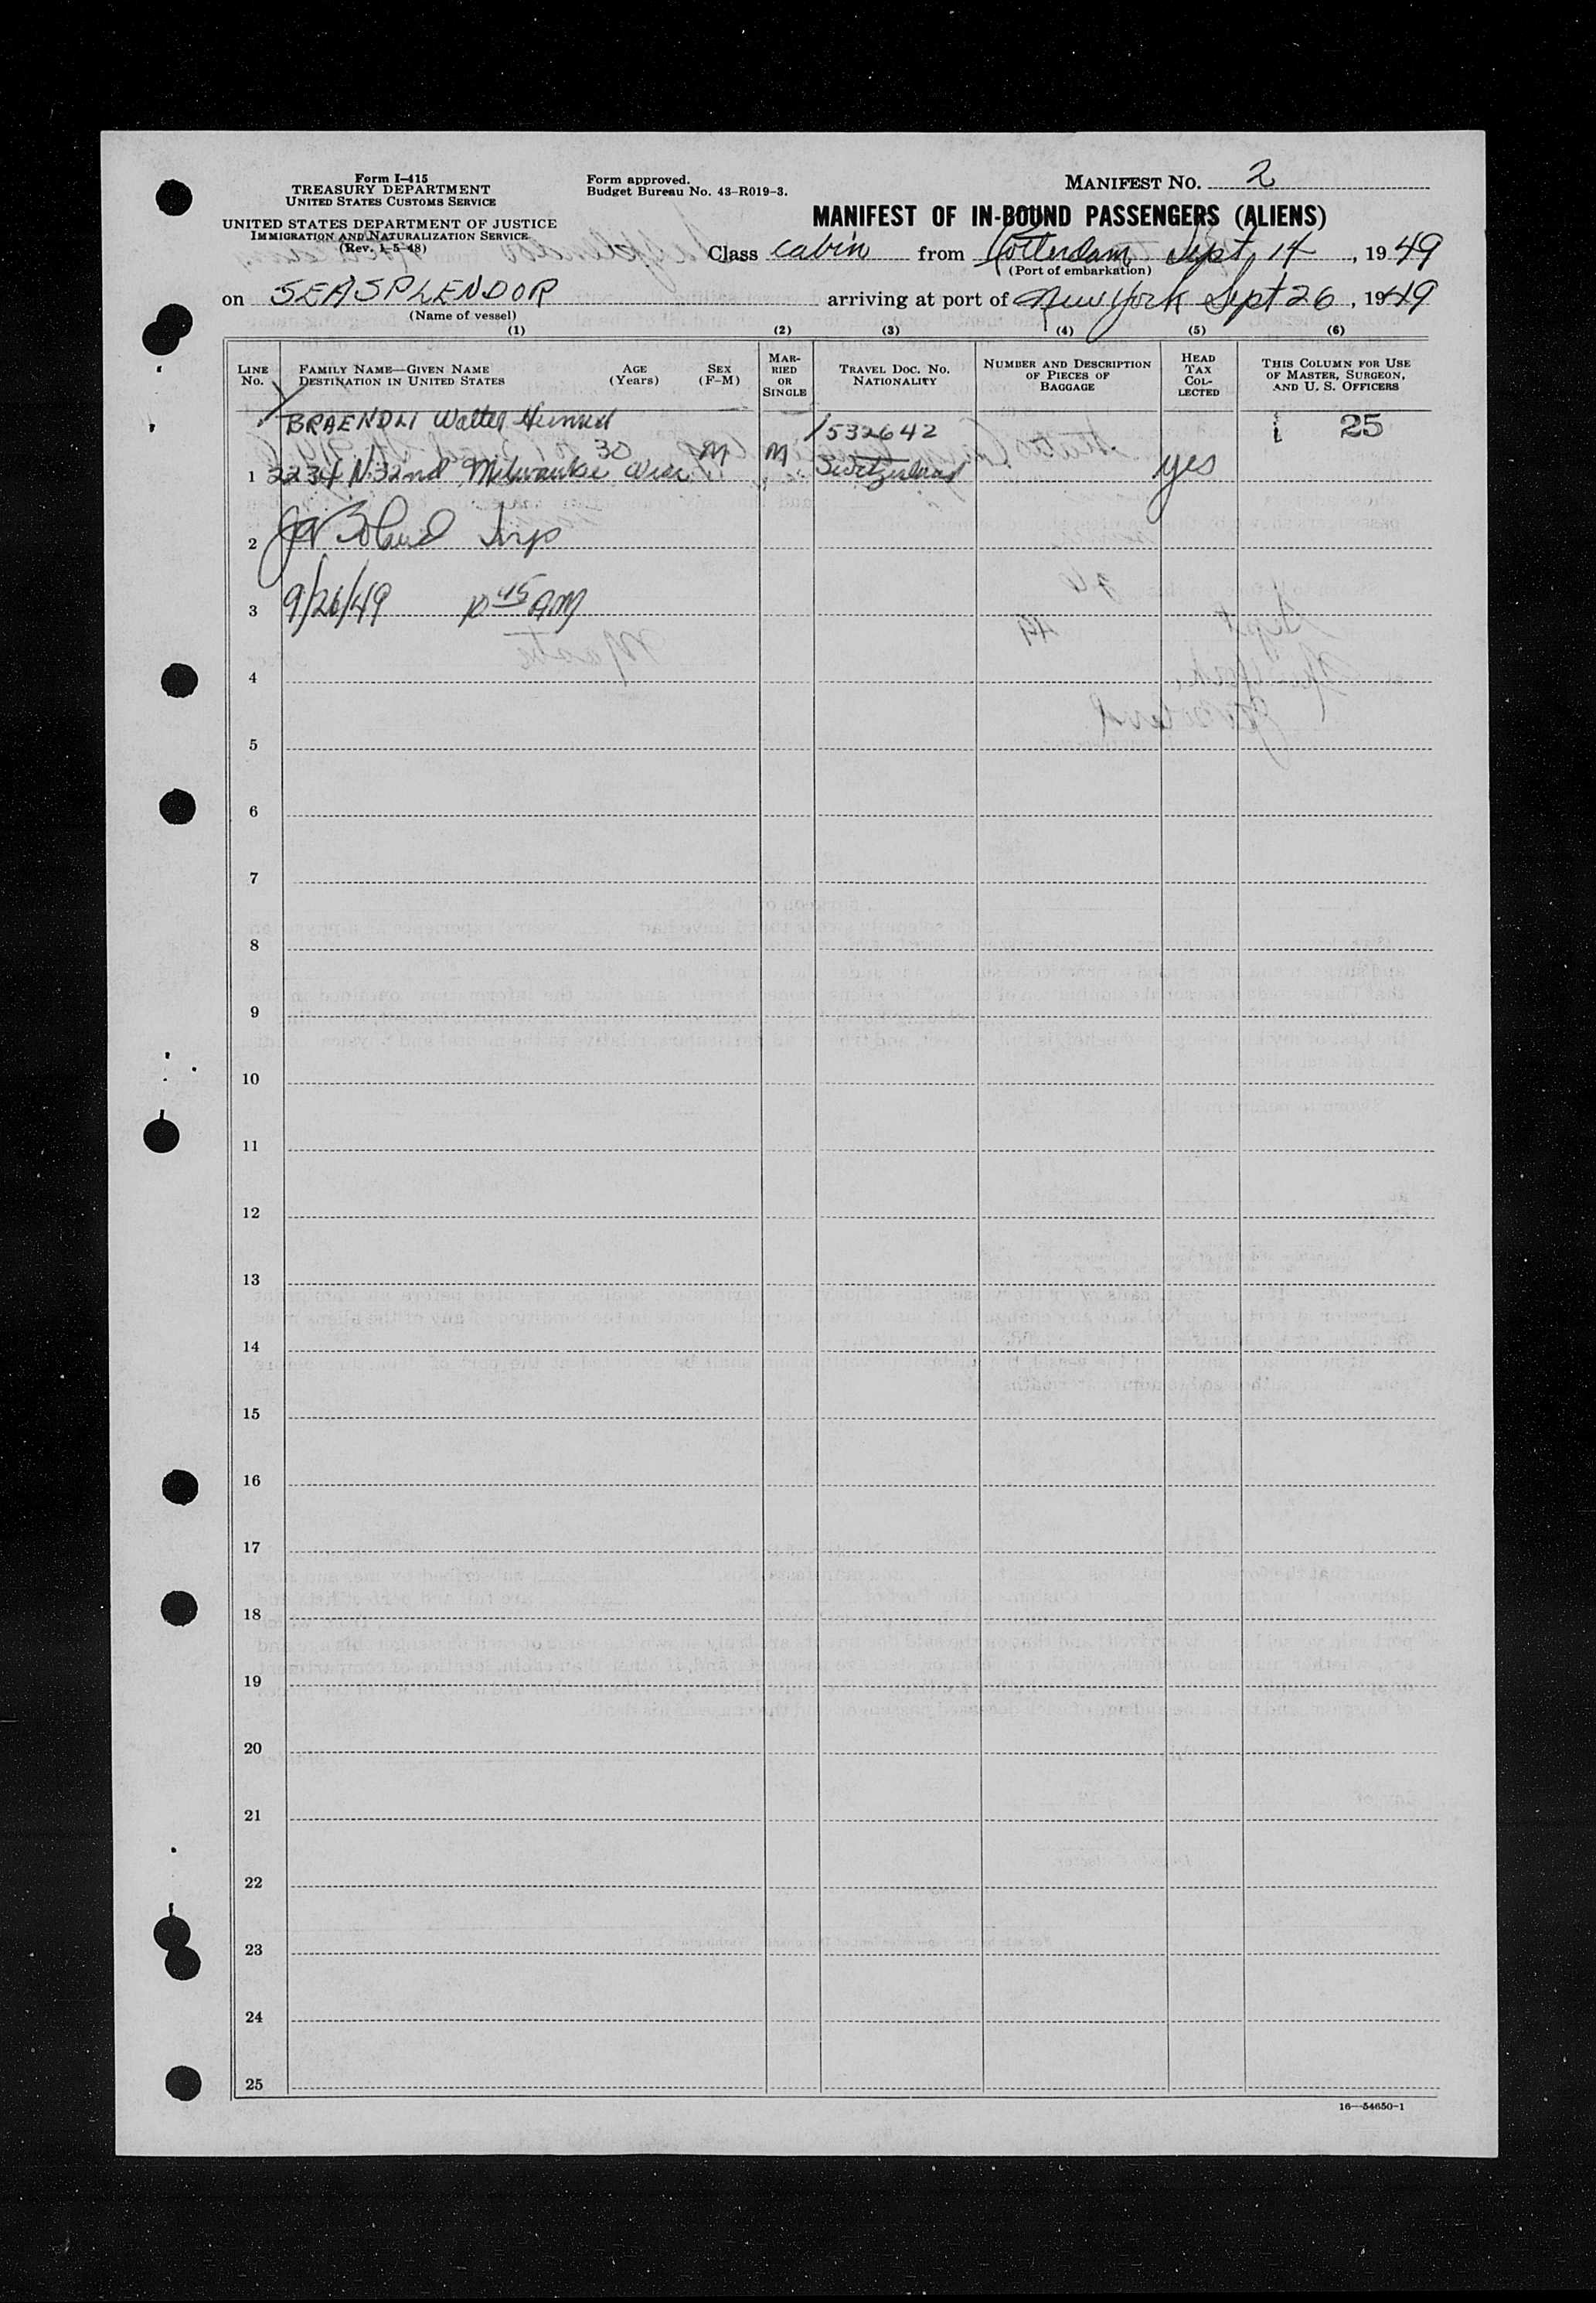 Form I-415
TREASURY DEPARTMENT
UNITED STATES CUSTOMS SERVICE
UNITED STATES DEPARTMENT OF JUSTICE
IMMIGRATION AND NATURALIZATION SERVICE
(Rev. 1-5-48)
Form approved.
Budget Bureau No. 43-R019-3.
MANIFEST NO. 2
MANIFEST OF IN-BOUND PASSENGERS (ALIENS)
Class cabin from Rotterdam Sept, 14, 1949
(Port of embarkation)
on SEASPLENDOR arriving at port of New York Sept 26, 1949
(Name of vessel)
(1) (2) (3) (4) (5) (6)
LINE NO.
FAMILY NAME—GIVEN NAME
DESTINATION IN UNITED STATES
AGE
(Years)
SEX
(F-M)
MAR-
RIED
OR
SINGLE
TRAVEL DOC. NO.
NATIONALITY
NUMBER AND DESCRIPTION
OF PIECES OF
BAGGAGE
HEAD
TAX
COL-
LECTED
THIS COLUMN FOR USE
OF MASTER, SURGEON,
AND U. S. OFFICERS
BRAENDLI Walter 532642 25
1 2234 N 32nd Milwaukee 30 M M Switzerland yes
2
3 9/26/49 10 45 AM
4
5
6
7
8
9
10
11
12
13
14
15
16
17
18
19
20
21
22
23
24
25
16—54650-1